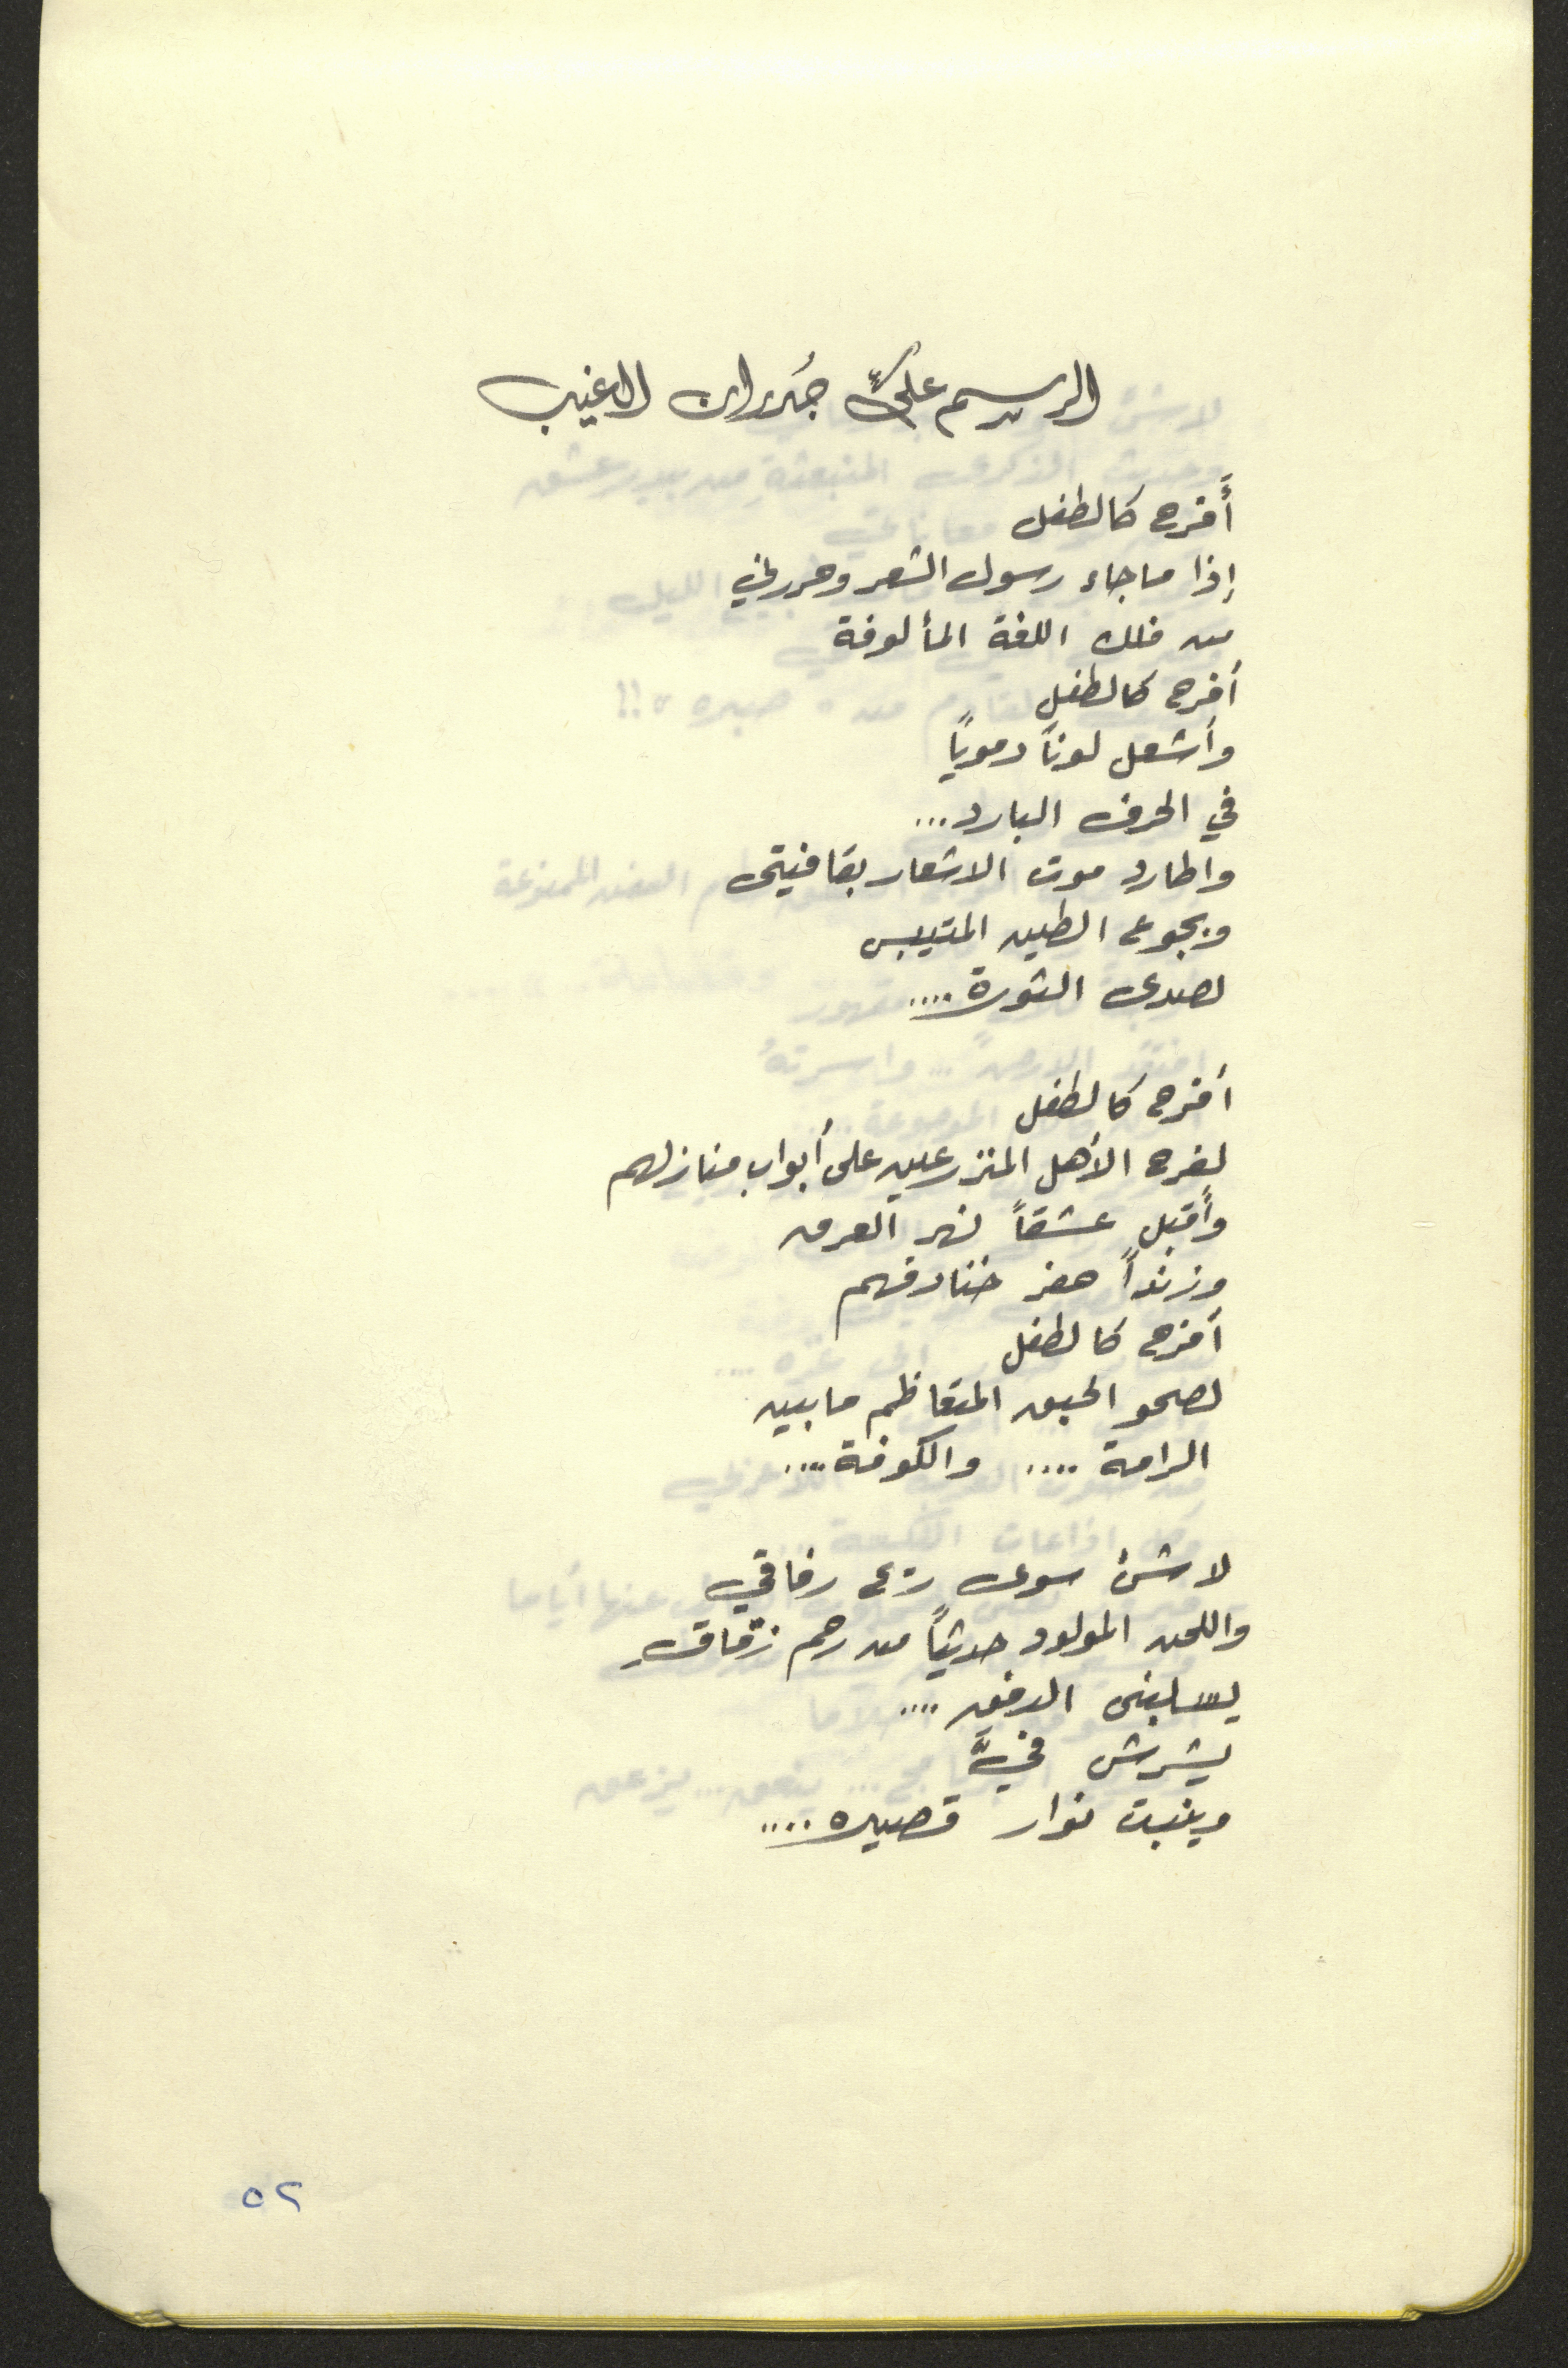 الرسم على جدران الغيب
أفرح كالطفل
إذا ما جاء رسول الشعر وحررني
من فلك اللغة المألوفة
أفرح كالطفل
وأشعل لوناً دموياً
في الحرف البارد...
واطارد موت الاشعار بقافيتى
وبجوع الطين المتيبس
لصدى الثورة....
أفرح كالطفل
لفرح الأهل المنزرعين على أبواب منازلهم
وأقبل عشقاً نهر العرق
وزنداً حفر خنادقهم
أفرح كالطفل
لصحو الحبق المتعاظم ما بين
الرامة .... والكوفة....
لا شئ سوى رفاقي
واللحن المولود حديثاً من رحم زقاقِ
يسلبنى الدفق ....
يشرش فيَّ
وينبت نوار قصيده....
٥٢